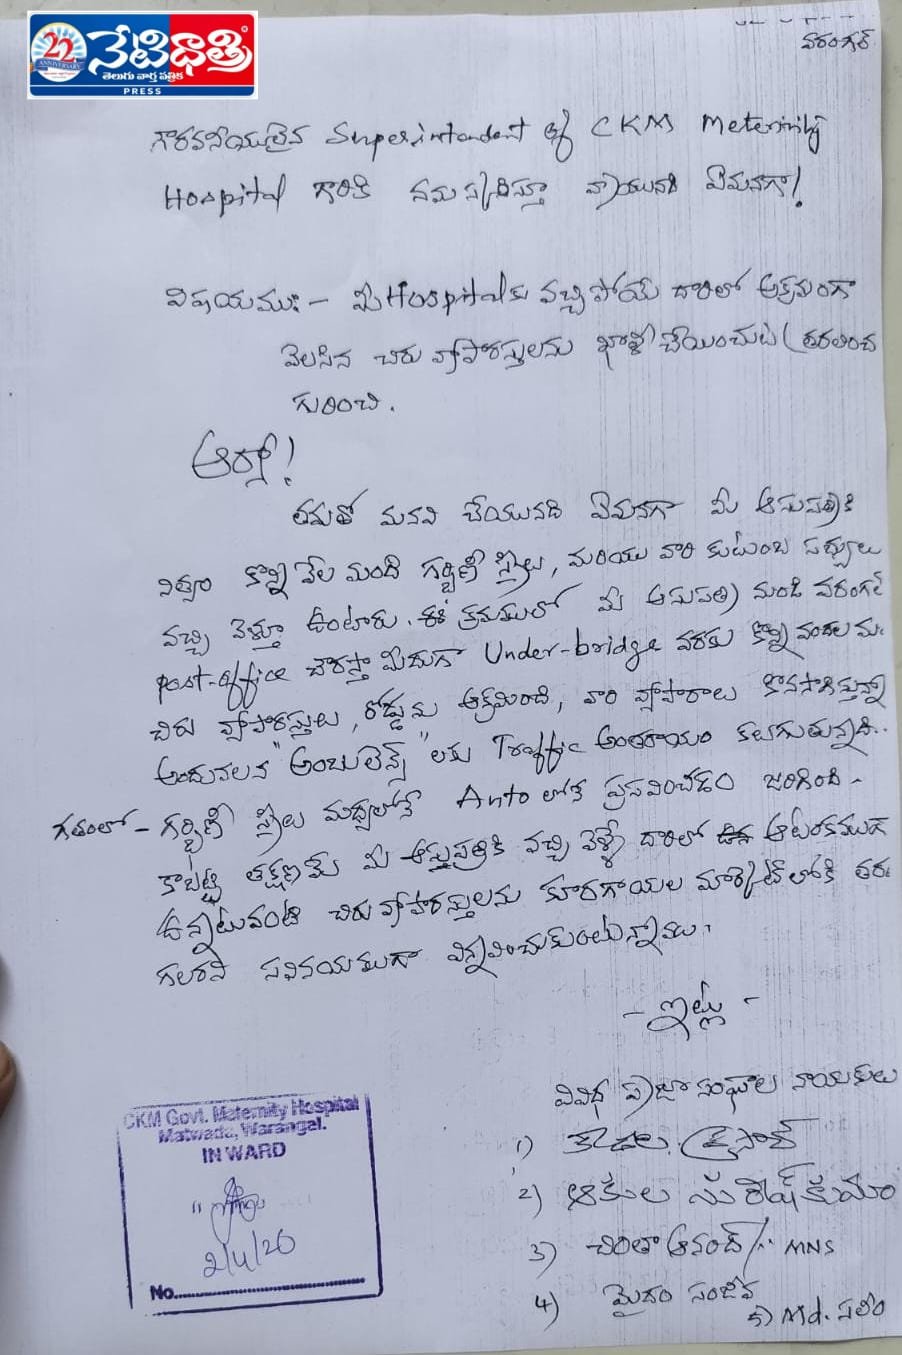 22
ANNIVERSARY
నేటిధాత్రి
తెలుగు వార్త పత్రిక
PRESS
వరంగల్
గౌరవనీయులైన Superintendent of CKM Meternity
Hospital గారికి నమస్కరిస్తూ వ్రాయునది ఏమనగా!
విషయము:- మీ Hospitalకు వచ్చిపోయే దారిలో అక్రమంగా
వెలసిన చిరు వ్యాపారస్తులను ఖాళీ చేయించుట (తరలించ
గురించి.
ఆర్యా!
తమతో మనవి చేయునది ఏమనగా మీ ఆసుపత్రికి
నిత్యం కొన్ని వేల మంది గర్భిణీ స్త్రీలు, మరియు వారి కుటుంబ సభ్యులు
వచ్చి వెళ్తూ ఉంటారు. ఈ క్రమములో మీ ఆసుపత్రి నుండి వరంగల్
post-office చౌరస్తా మీదుగా Under-bridge వరకు కొన్ని వందల మ
చిరు వ్యాపారస్తులు, రోడ్డును ఆక్రమించి, వారి వ్యాపారాలు కొనసాగిస్తున్నా
అందువలన "అంబులెన్స్" లకు Traffic అంతరాయం కలుగుతున్నది.
గతంలో - గర్భిణీ స్త్రీలు మధ్యలోనే Auto లోనే ప్రసవించడం జరిగింది -
కాబట్టి తక్షణమే మీ ఆస్పత్రికి వచ్చి వెళ్ళే దారిలో ఆటంకముగ
ఉన్నటువంటి చిరు వ్యాపారస్తులను కూరగాయల మార్కెట్ లోకి తర
గలరని సవినయముగా విన్నవించుకుంటున్నాము.
- ఇట్లు -
వివిధ ప్రజా సంఘాల నాయకులు
1)
2) ఆకుల సురేష్ కుమార్
3) చిరితా ఆనంద్ MNS
4) మైదం సంజీవ
5) Md. సలీం
CKM Govt. Maternity Hospital
Matwada, Warangal.
IN WARD
2/4/26
No.